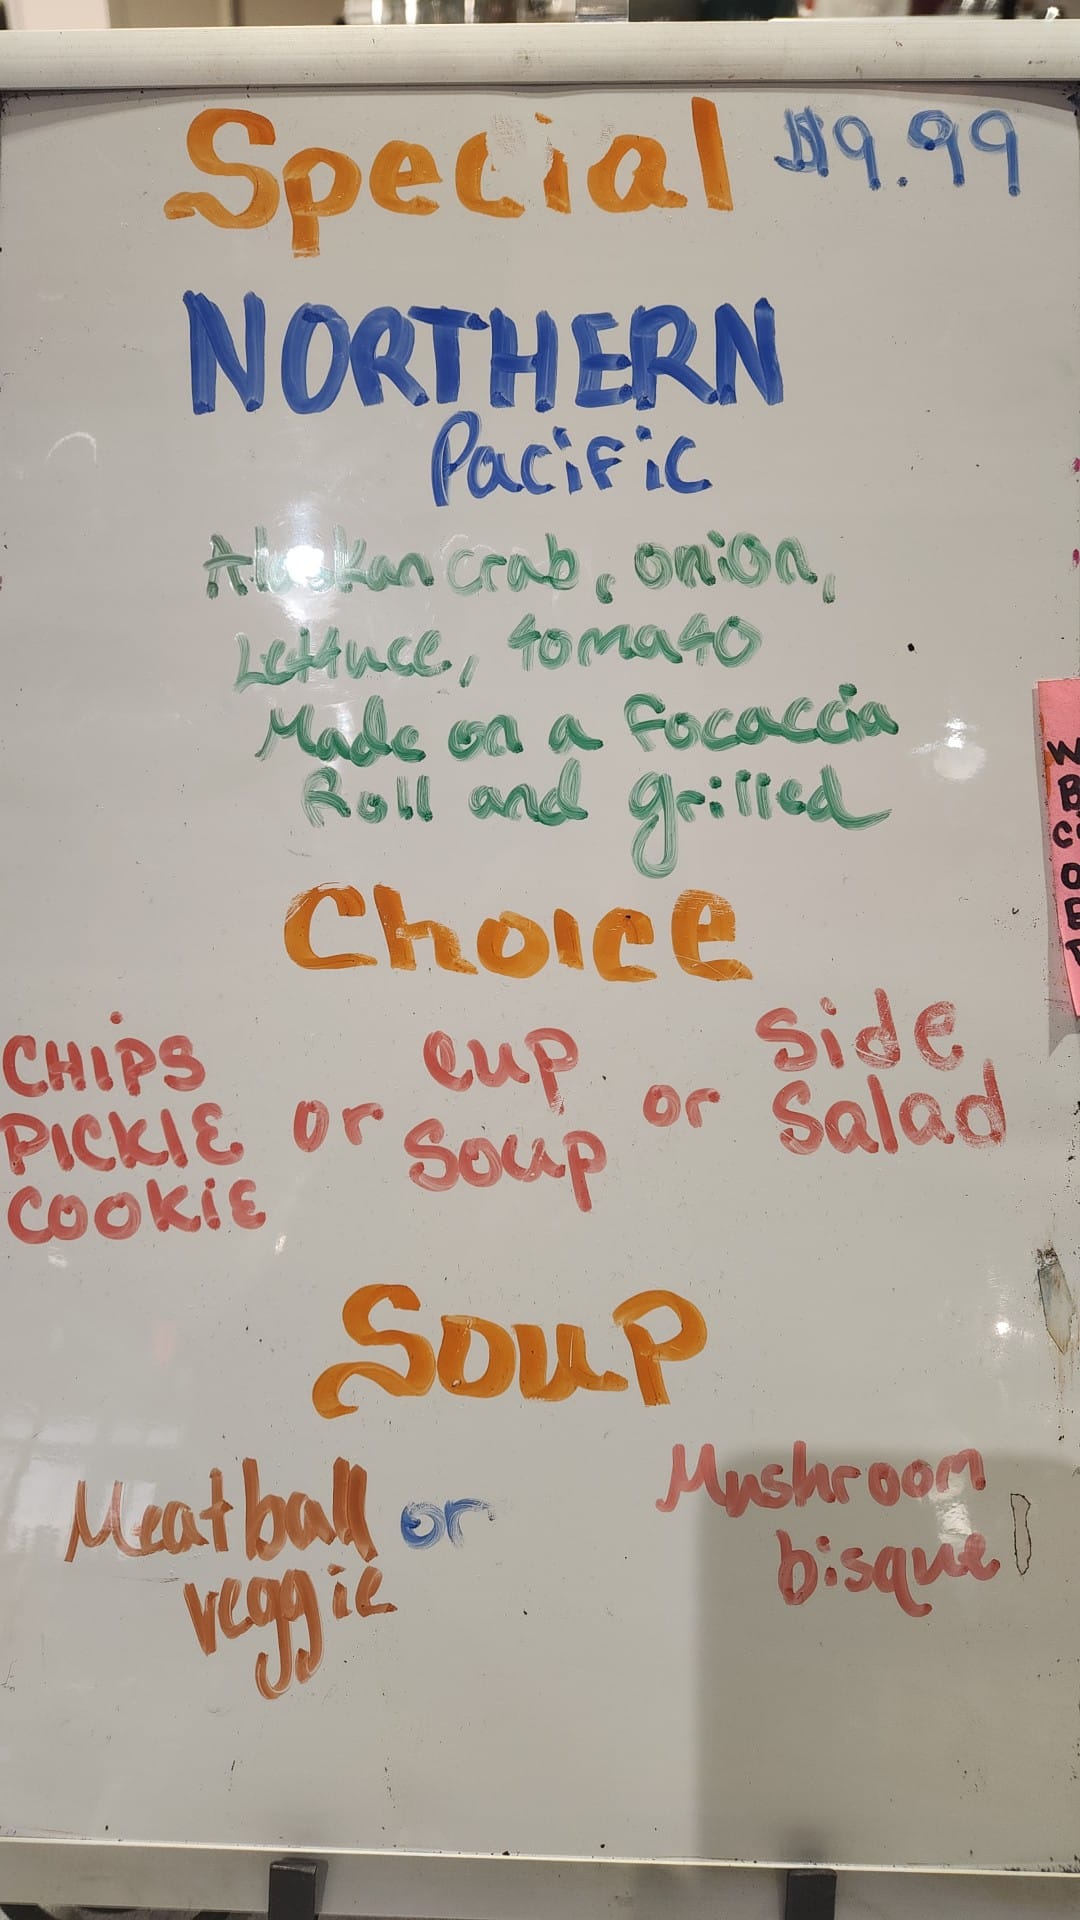 Special $9.99
NORTHERN
Pacific
Alaskan crab, onion,
Lettuce, tomato
Made on a focaccia
Roll and grilled
Choice
CHIPS
PICKLE
COOKiE
or
cup
Soup
or
Side
Salad
Soup
Meatball
veggie
or
Mushroom
bisque